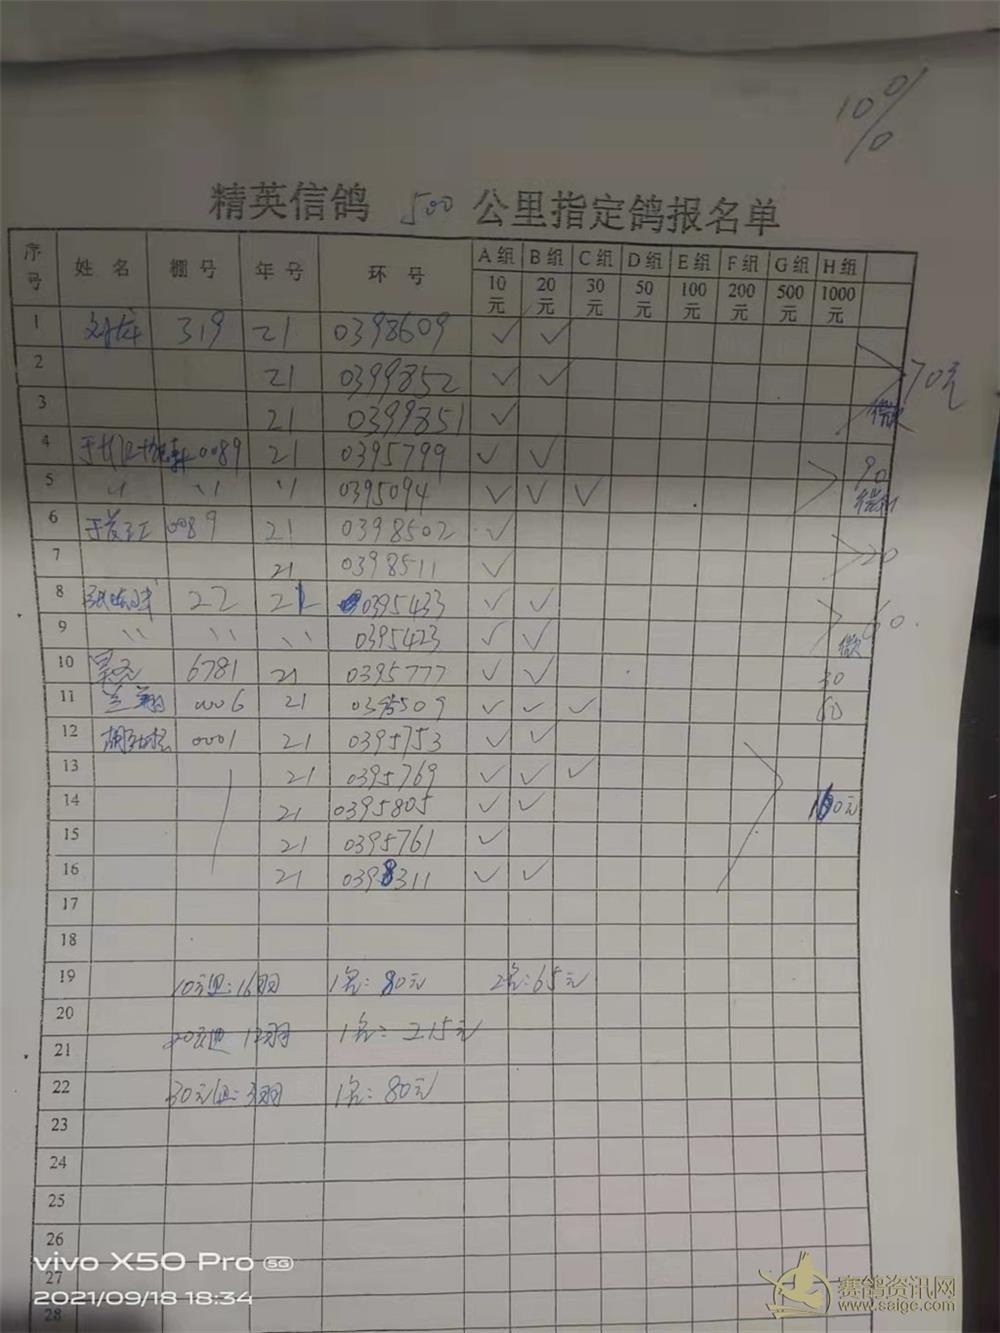 10%
精英信鸽 500 公里指定鸽报名单
序号 姓名 棚号 年号 环号 A组 B组 C组 D组 E组 F组 G组 H组
10元 20元 30元 50元 100元 200元 500元 1000元
1 319 21 0398609 ✓ ✓
2 21 0399852 ✓ ✓ 70元
3 21 0399851 ✓
4 0089 21 0395799 ✓ ✓ 90
5 〃 〃 〃 0395094 ✓ ✓ ✓
6 0089 21 0398502 ✓
7 21 0398511 ✓ 20
8 22 21 0395433 ✓ ✓ 60.
9 〃 〃 〃 0395423 ✓ ✓
10 6781 21 0395777 ✓ ✓ 30
11 兰翔 0006 21 0395509 ✓ ✓ ✓ 60
12 0001 21 0395753 ✓ ✓
13 21 0395769 ✓ ✓ ✓
14 21 0395805 ✓ ✓
15 21 0395761 ✓
16 21 0398311 ✓ ✓
17
18
19 10元组:16羽 1名:80元 2名:65元
20
20元组 12羽 1名:215元
21
22 30元组:3羽 1名:80元
23
24
25
26
27
28
vivo X50 Pro 5G
2021/09/18 18:34
赛鸽资讯网
www.saigc.com